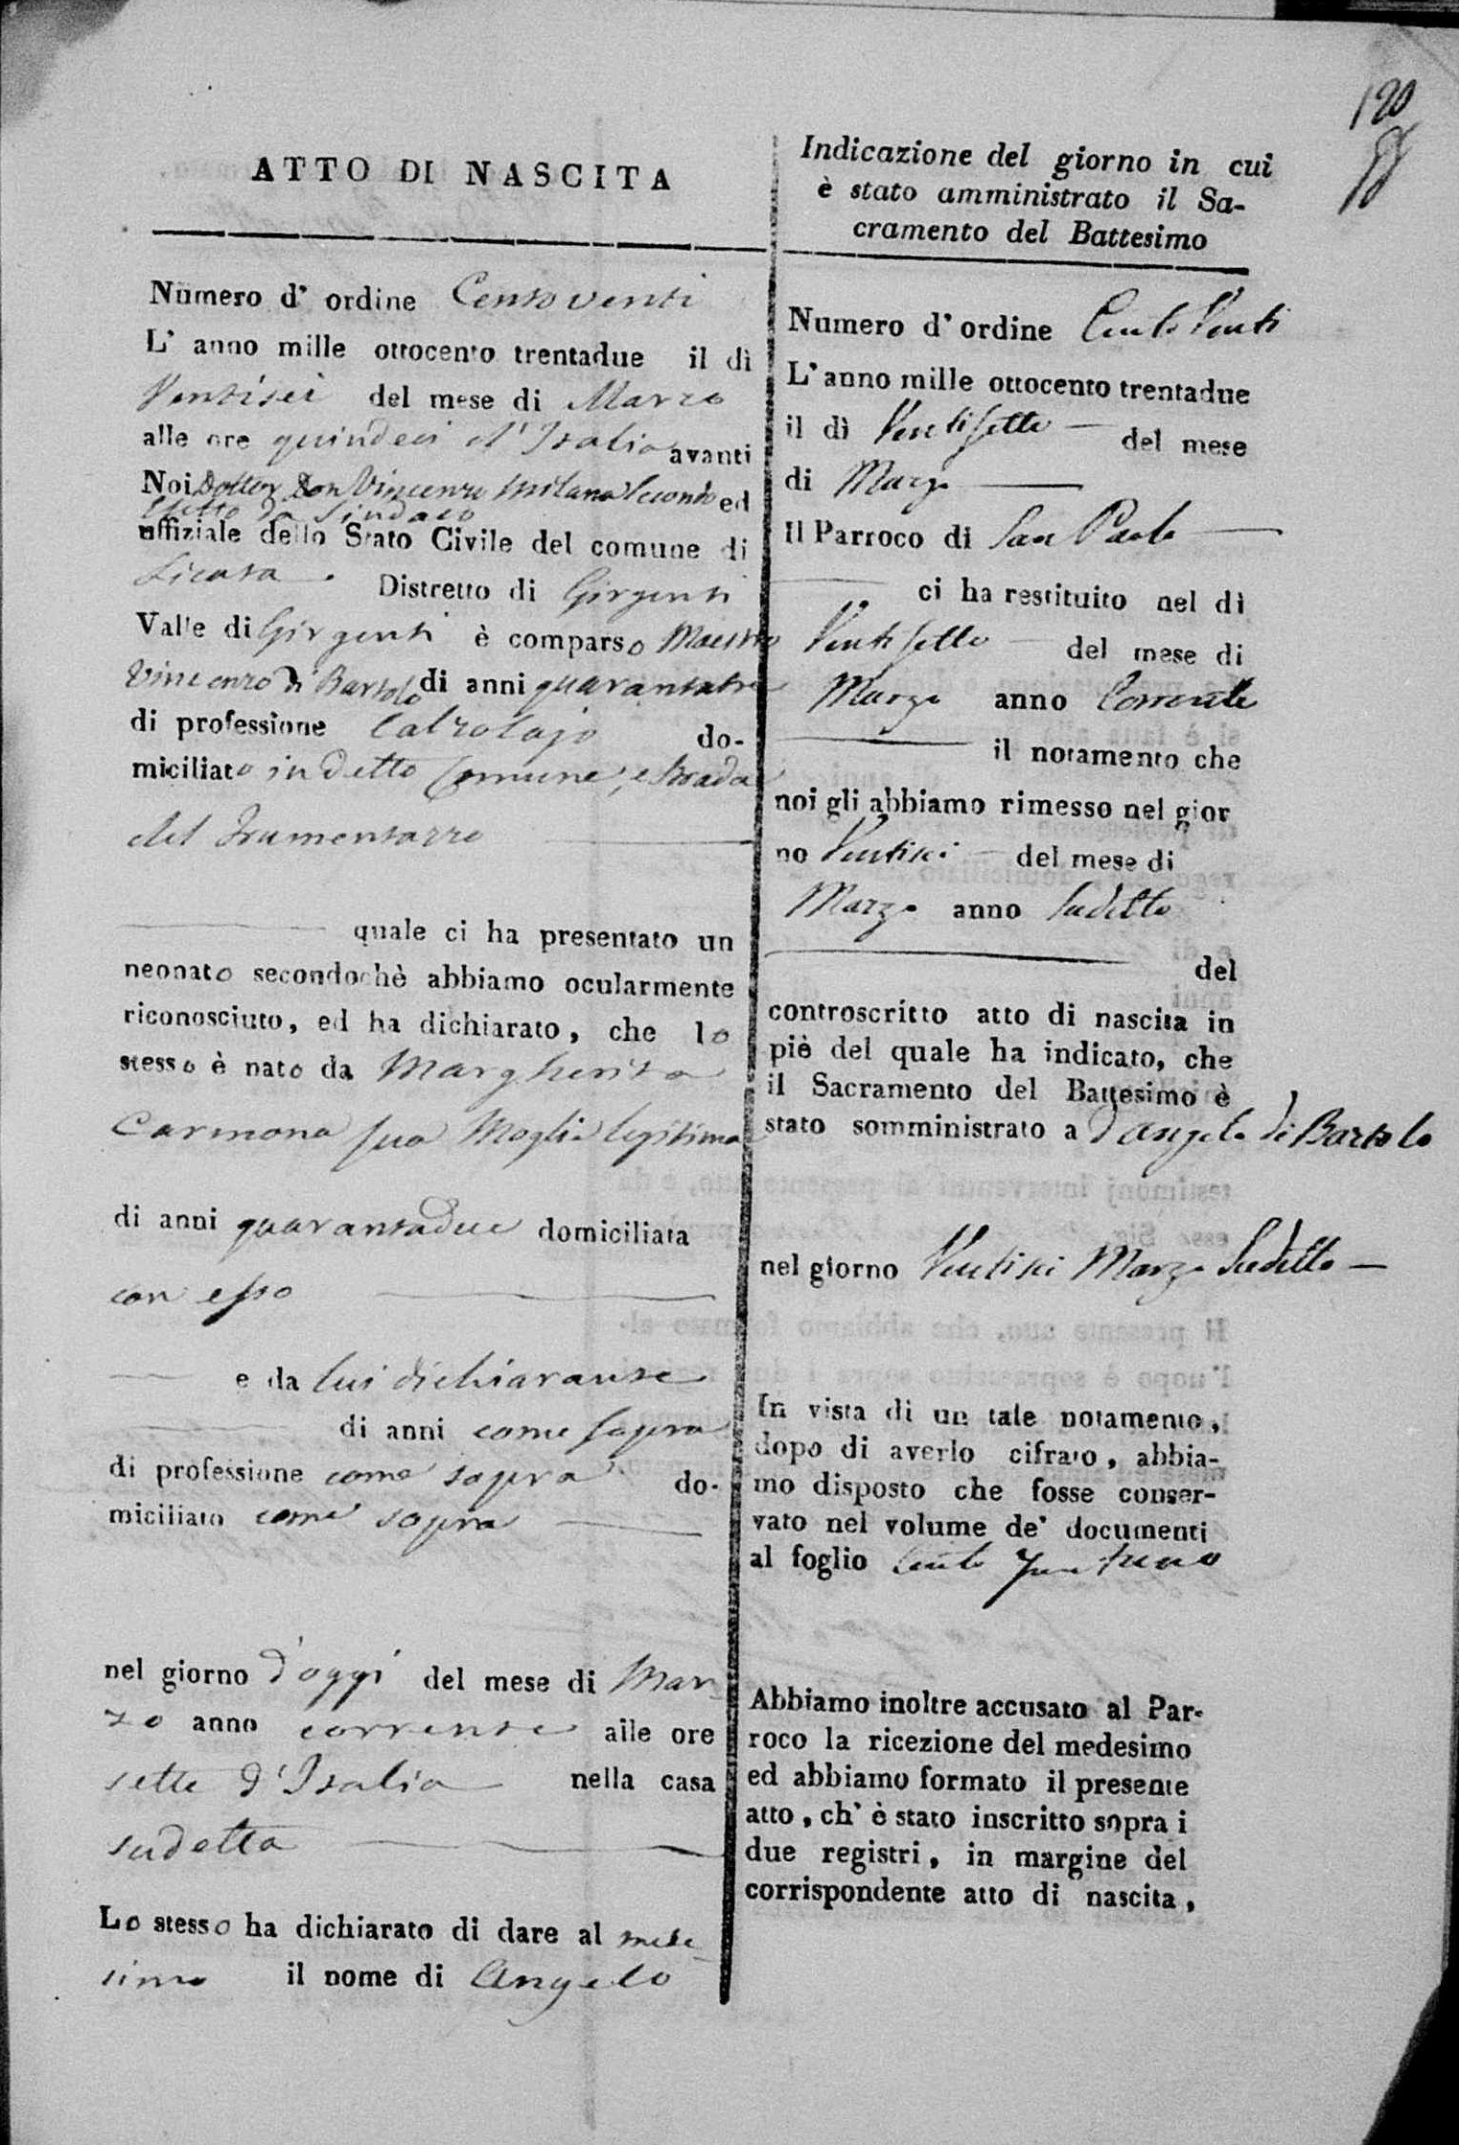 120
ATTO DI NASCITA
Numero d' ordine Centoventi
L' anno mille ottocento trentadue il dì
Ventisei del mese di Marzo
alle ore quindeci d'Italia avanti
Noi Dottor Don Vincenzo Milana Secondo ed
Eletto da Sindaco
uffiziale dello Stato Civile del comune di
Licata. Distretto di Girgenti
Valle di Girgenti è comparso Maestro
Vincenzo di Bartolo di anni quarantatre
di professione Calzolajo do-
miciliato in detto Comune, e Strada
del Frumentarro
quale ci ha presentato un
neonato secondochè abbiamo ocularmente
riconosciuto, ed ha dichiarato, che lo
stesso è nato da Margherita
Carmona sua Moglie legitima
di anni quarantadue domiciliata
con esso
e da lui dichiarante
di anni come sopra
di professione come sopra do-
miciliato come sopra
nel giorno d'oggi del mese di Mar-
zo anno corrente alle ore
sette d'Italia nella casa
sudetta
Lo stesso ha dichiarato di dare al mede-
simo il nome di Angelo
Indicazione del giorno in cui
è stato amministrato il Sa-
cramento del Battesimo
Numero d' ordine Cento Venti
L' anno mille ottocento trentadue
il dì Ventisette del mese
di Marzo
Il Parroco di San Paolo
ci ha restituito nel dì
Ventisette del mese di
Marzo anno Corrente
il notamento che
noi gli abbiamo rimesso nel gior
no Ventisei del mese di
Marzo anno Sudetto
del
controscritto atto di nascita in
piè del quale ha indicato, che
il Sacramento del Battesimo è
stato somministrato a d'Angelo di Bartolo
nel giorno Ventisei Marzo Sudetto
In vista di un tale notamento,
dopo di averlo cifrato, abbia-
mo disposto che fosse conser-
vato nel volume de' documenti
al foglio Cento
Abbiamo inoltre accusato al Par-
roco la ricezione del medesimo
ed abbiamo formato il presente
atto, ch' è stato inscritto sopra i
due registri, in margine del
corrispondente atto di nascita,